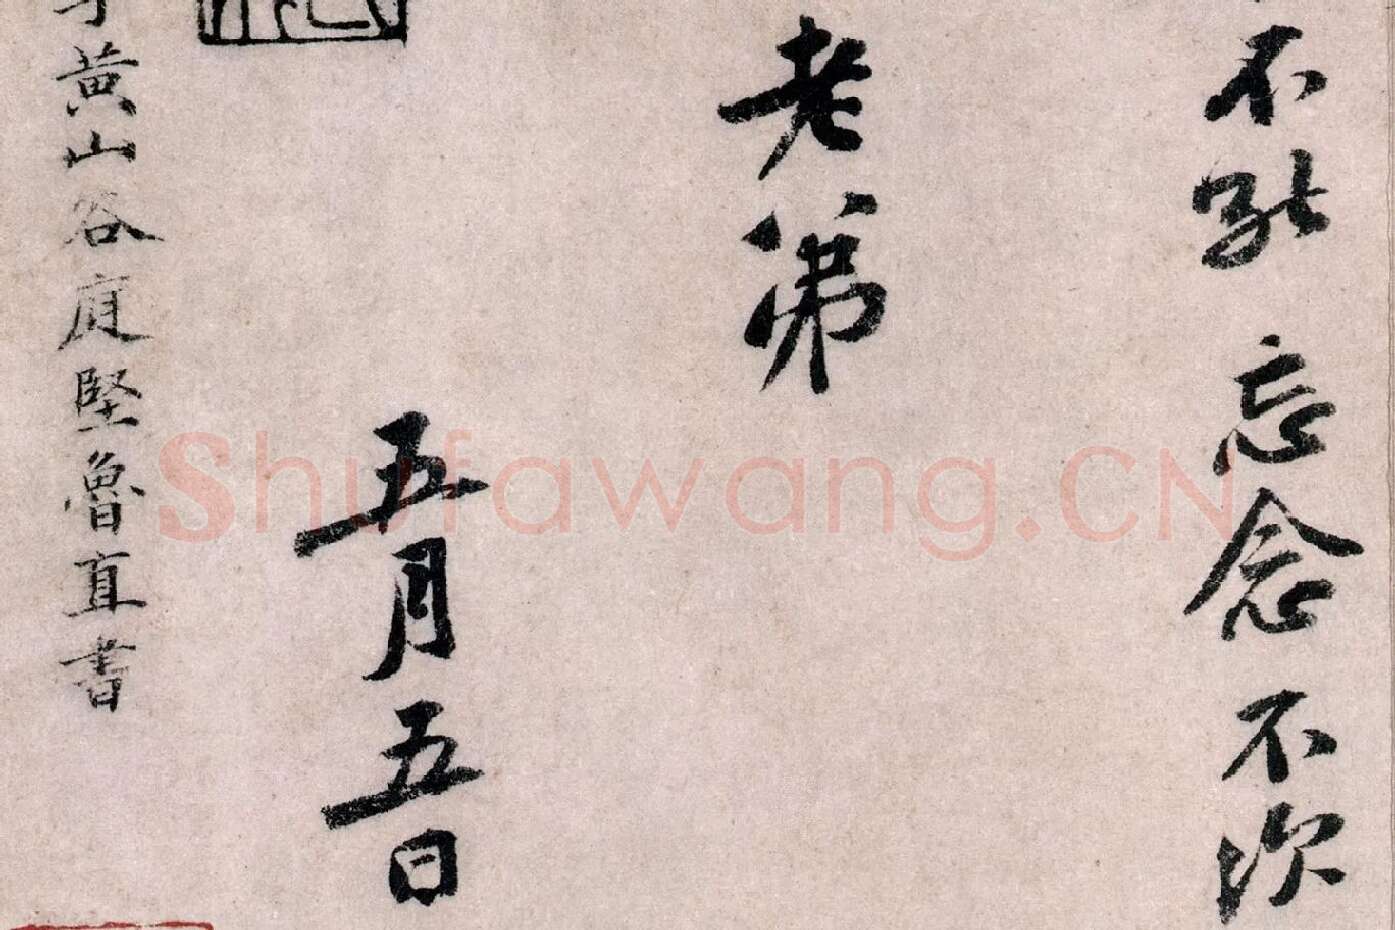 不能忘念不次
老弟
五月五日
黄山谷庭堅魯直書
Shufawang.CN